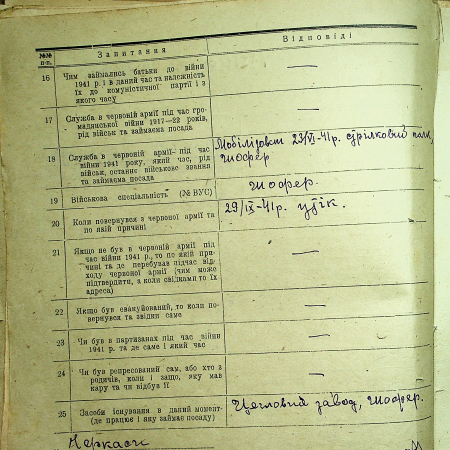 №№ п-п. Запитання Відповіді
16 Чим займались батьки до війни —
1941 р. і в даний час та належність
їх до комуністичної партії і з
якого часу
17 Служба в червоній армії під час гро- —
мадянської війни 1917—22 років,
рід військ та займаєма посада
18 Служба в червоній армії під час Мобілізован 23/VI-41р. стрілковий полк,
війни 1941 року, який час, рід шофер
військ, останнє військове звання
та займаєма посада
19 Військова спеціальність (№ ВУС) шофер.
20 Коли повернувся з червоної армії та 29/IX-41р. утік.
по якій причині
21 Якщо не був в червоній армії під —
час війни 1941 р., то по якій при-
чині та де перебував підчас від-
ходу червоної армії (чим може
підтвердити, а коли свідками то їх
адреса)
22 Якщо був евакуйований, то коли по- —
вернувся та звідки саме
23 Чи був в партизанах під час війни —
1941 р. та де саме і який час
24 Чи був репресований сам, або хто з —
родичів, коли і защо, яку мав
кару та чи відбув її
25 Засоби існування в даний момент- Цегловий завод, шофер.
(де працює і яну займає посаду)
Черкаси